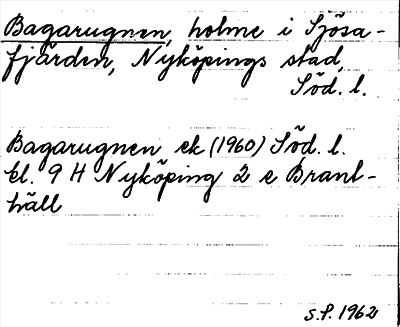 Bagarugnen, holme i Sjösa-
fjärden, Nyköpings stad,
Söd. l.
Bagarugnen ek (1960) Söd. l.
bl. 9 H Nyköping 2 e Brant-
häll
S.P. 1962